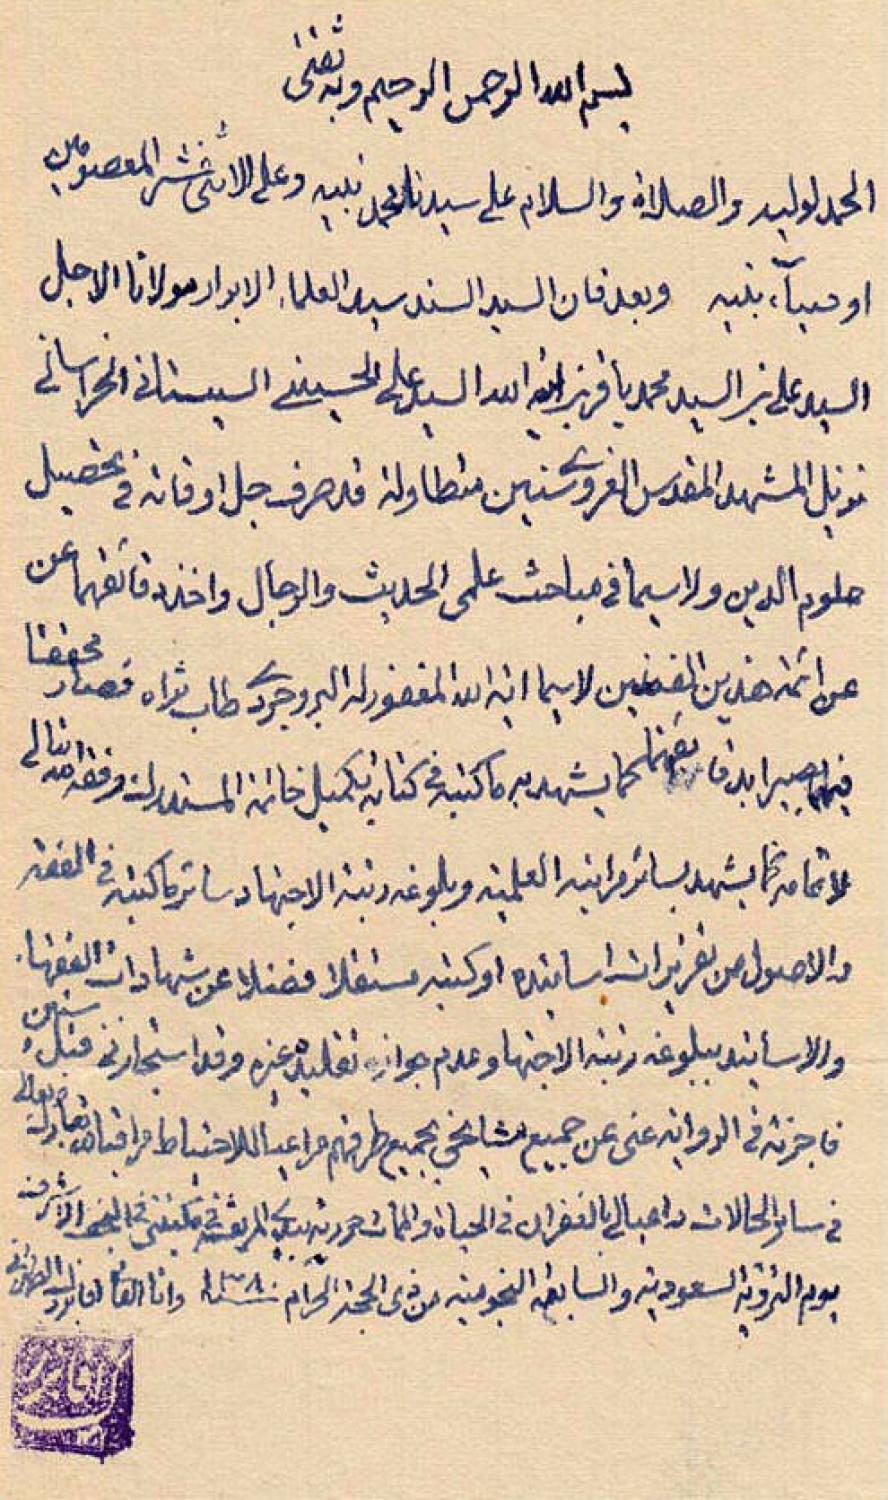 بسم الله الرحمن الرحيم وبه ثقتي
الحمد لوليه والصلاة والسلام على سيدنا محمد نبيه وعلى الاثنى عشر المعصومين
اوصياء نبيه وبعد فان السيد السند سيد العلماء الابرار مولانا الاجل
السيد علي بن السيد محمد باقر بن اية الله السيد علي الحسيني السيستاني الخراساني
نزيل المشهد المقدس الغروي سنين متطاولة قد صرف جل اوقاته في تحصيل
علوم الدين ولا سيما في مباحث علمي الحديث والرجال واخذ دقائقهما عن
عن ائمة هذين الفنين لا سيما اية الله المغفور له البروجردي طاب ثراه فصار محققا
فيهما بصيرا بدقائقهما كما يشهد به ما كتبه في كتابه تكميل خاتمة المستدرك وفقه الله تعالى
لاتمامه كما يشهد بسائر مراتبه العلمية وبلوغه رتبة الاجتهاد سائر ما كتبه في الفقه
والاصول من تقريرات اساتيذه او كتبه مستقلا فضلا عن شهادات الفقهاء
والاساتيد ببلوغه رتبة الاجتهاد وعدم جواز تقليده غيره وقد استجازني قبل سنين
فاجزته في الرواية عني عن جميع مشايخي بجميع طرقهم مراعيا للاحتياط مراقبا لله تبارك وتعالى
في سائر الحالات داعيا لي بالغفران في الحياة والممات حررته بيدي المرتعشة في مكتبتي في النجف الاشرف
يوم التروية السعودية والسابعة النجومية من ذي الحجة الحرام سنة ١٣٨٠ وانا الفاني اقا بزرك الطهراني